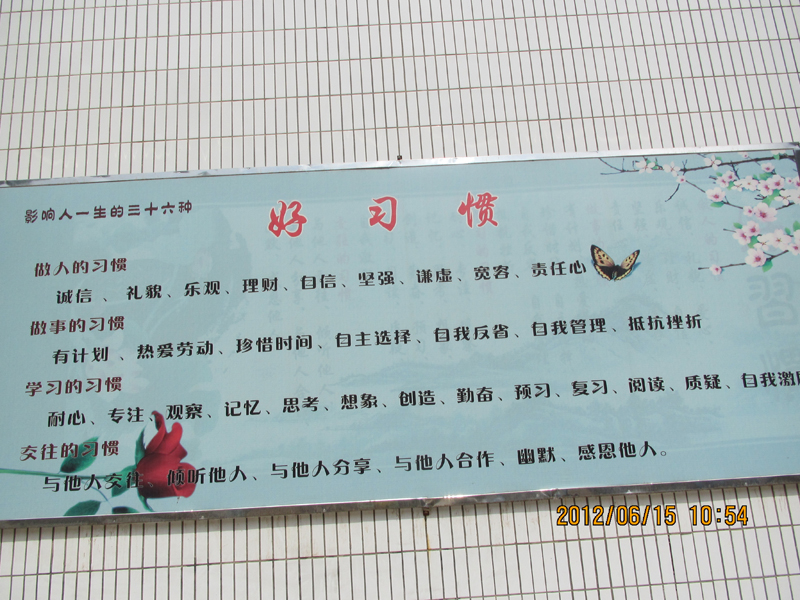 影响人一生的三十六种
好习惯
做人的习惯
诚信、礼貌、乐观、理财、自信、坚强、谦虚、宽容、责任心
做事的习惯
有计划、热爱劳动、珍惜时间、自主选择、自我反省、自我管理、抵抗挫折
学习的习惯
耐心、专注、观察、记忆、思考、想象、创造、勤奋、预习、复习、阅读、质疑、自我激
交往的习惯
与他人交往、倾听他人、与他人分享、与他人合作、幽默、感恩他人。
習
2012/06/15 10:54